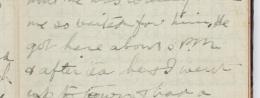 me so waited for him. He
got here about 5 P.M.
& after tea he & I went
up to town & had a